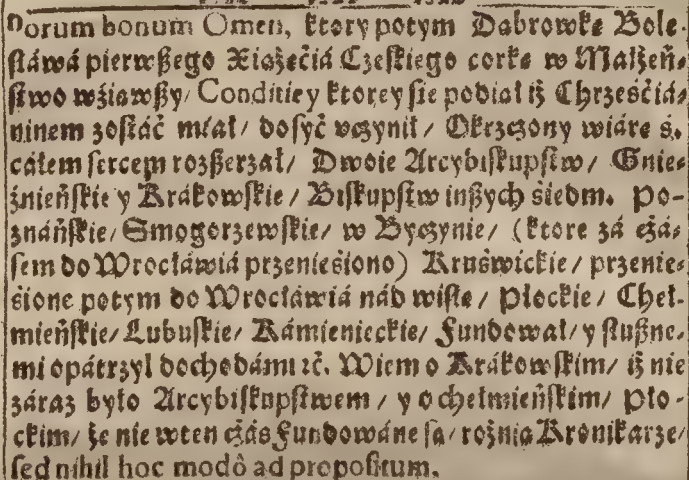 norum bonum Omen, ktory potym Dabrowke Bole-
sławá pierwßego Xiążęćiá Czeskiego corke w Małżeń-
stwo wźiawßy/ Conditiey ktorey sie podiał iż Chrześćiá-
ninem zostáć miał/ dosyć vczynił/ Okrzczony wiáre ś.
cáłem sercem rozßerzał/ Dwoie Arcybiskupstw/ Gnie-
źnieńskie y Krákowskie/ Biskupstw inßych śiedm. Po-
znáńskie/ Smogorzewskie/ w Byczynie/ (ktore zá czá-
sem do Wrocłáwiá przenieśiono) Kruświckie/ przenie-
śione potym do Wrocłáwiá nád wisłe/ Płockie/ Cheł-
mieńskie/ Lubuskie/ Kámienieckie/ Fundował/ y słußne-
mi opátrzył dochodámi ꝛc. Wiem o Krákowskim/ iż nie
záraz było Arcybiskupstwem/ y o chełmieńskim/ Pło-
ckim/ że nie wten czás Fundowáne sa/ rożnia Kronikarze/
sed nihil hoc modò ad propositum.